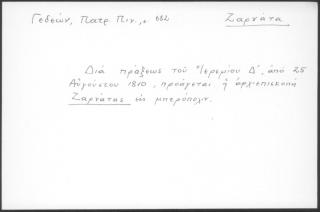 Γεδεών, Πατρ. Πιν., σ. 682
Ζαρνάτα
Διά πράξεως τοῦ Ἱερεμίου Δ', ἀπό 25
Αὐγούστου 1810, προάγεται ἡ ἀρχιεπισκοπή
Ζαρνάτας εἰς μητρόπολιν.